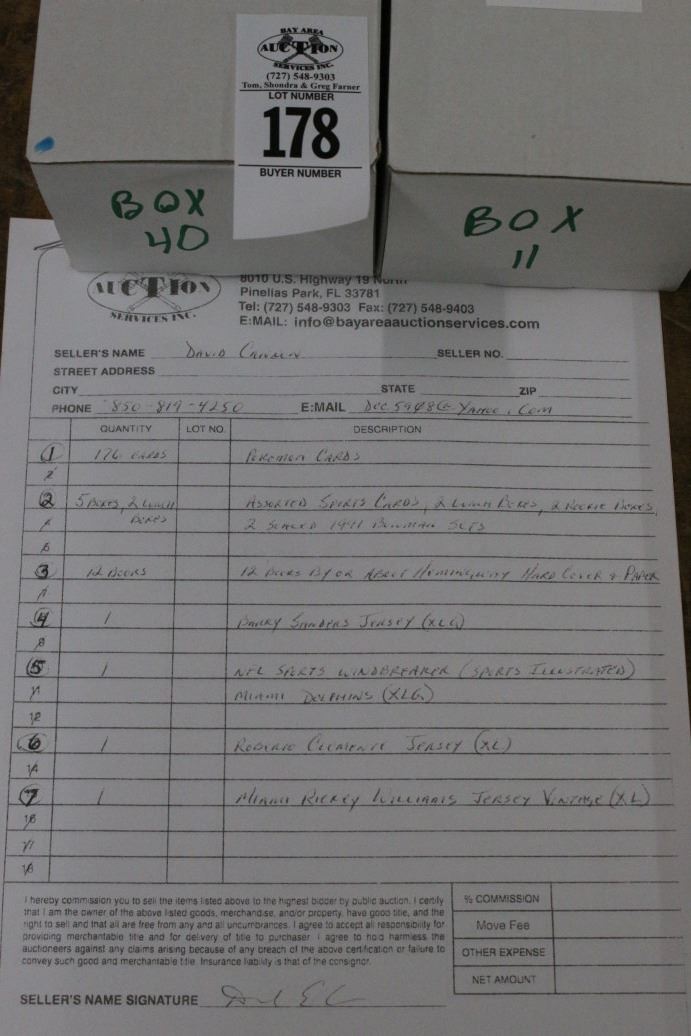 BAY AREA
AUCTION
SERVICES INC.
(727) 548-9303
Tom, Shondra & Greg Farner
LOT NUMBER
178
BUYER NUMBER
BOX
40
BOX
11
AUCTION
SERVICES INC.
8010 U.S. Highway 19 North
Pinellas Park, FL 33781
Tel: (727) 548-9303 Fax: (727) 548-9403
E:MAIL: info@bayareaauctionservices.com
SELLER'S NAME David SELLER NO.
STREET ADDRESS
CITY STATE ZIP
PHONE 850-819-4250 E:MAIL
QUANTITY LOT NO. DESCRIPTION
1 176 CARDS POKEMON CARDS
2
2 5 BOXES, 2 LUNCH ASSORTED SPORTS CARDS, 2 LUNCH BOXES, 2 ROOKIE BOXES,
4 BOXES 2 SEALED 1991 BOWMAN SETS
6
3 12 BOOKS 12 BOOKS BY OR ABOUT HEMINGWAY HARD COVER & PAPER
4 1 BARRY SANDERS JERSEY (XLG)
9
5 1 NFL SPORTS WINDBREAKER (SPORTS ILLUSTRATED)
11 MIAMI DOLPHINS (XLG)
12
6 1 ROBERTO CLEMENTE JERSEY (XL)
14
7 1 MIAMI RICKEY WILLIAMS JERSEY VINTAGE (XL)
16
17
18
I hereby commission you to sell the items listed above to the highest bidder by public auction. I certify
that I am the owner of the above listed goods, merchandise, and/or property, have good title, and the
right to sell and that all are free from any and all uncumbrances. I agree to accept all responsibility for
providing merchantable title and for delivery of title to purchaser. I agree to hold harmless the
auctioneers against any claims arising because of any breach of the above certification or failure to
convey such good and merchantable title. Insurance liability is that of the consignor.
% COMMISSION
Move Fee
OTHER EXPENSE
NET AMOUNT
SELLER'S NAME SIGNATURE